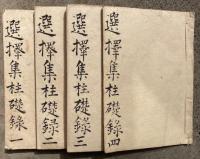 選擇集柱礎錄 一
選擇集柱礎錄 二
選擇集柱礎錄 三
選擇集柱礎錄 四